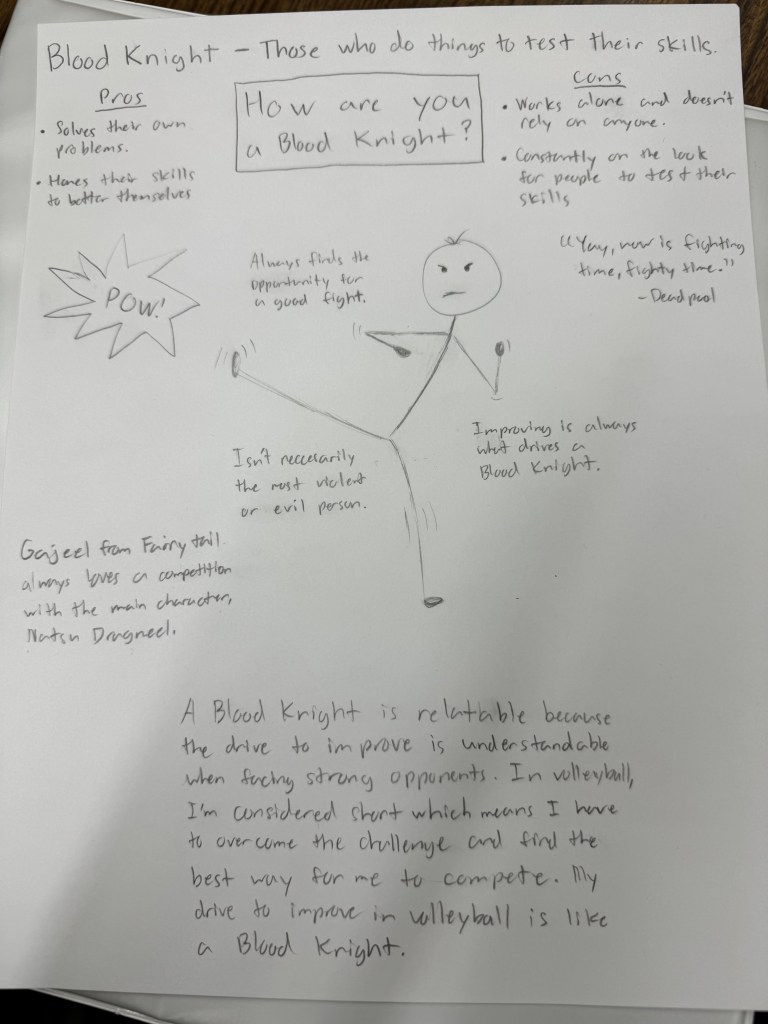 Blood Knight – Those who do things to test their skills.
Pros
• Solves their own
problems.
• Hones their skills
to better themselves
How are you
a Blood Knight?
Cons
• Works alone and doesn't
rely on anyone.
• Constantly on the look
for people to test their
skills
POW!
Always finds the
opportunity for
a good fight.
"Yay, now is fighting
time, fighty time."
- Deadpool
Isn't neccesarily
the most violent
or evil person.
Improving is always
what drives a
Blood Knight.
Gajeel from Fairy tail
always loves a competition
with the main character,
Natsu Dragneel.
A Blood Knight is relatable because
the drive to improve is understandable
when facing strong opponents. In volleyball,
I'm considered short which means I have
to overcome the challenge and find the
best way for me to compete. My
drive to improve in volleyball is like
a Blood Knight.